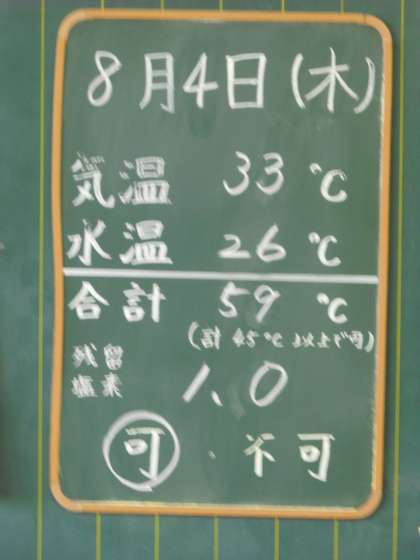 8月4日(木)
気温 33 ℃
水温 26 ℃
合計 59 ℃
(計 45℃ 以上で可)
残留塩素 1.0
可・不可